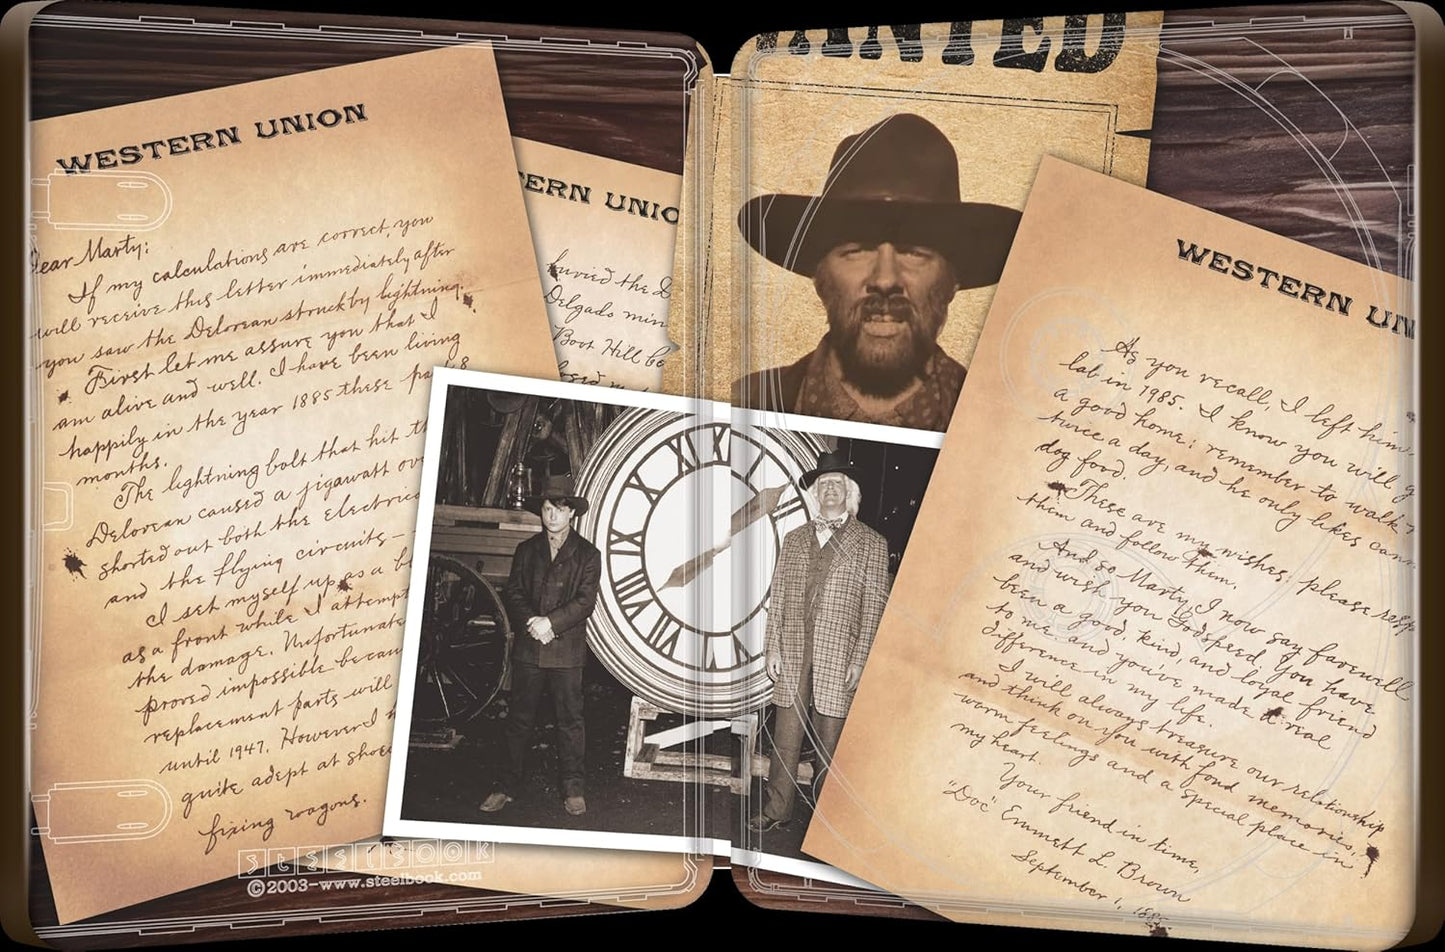 WESTERN UNION
Dear Marty:
If my calculations are correct, you
will receive this letter immediately after
you saw the Delorean struck by lightning.
First let me assure you that I
am alive and well. I have been living
happily in the year 1885 these pa 8
months.
The lightning bolt that hit th
Delorean caused a jigawatt ove
shorted out both the electric
and the flying circuits—
I set myself up as a b
as a front while I attempt
the damage. Unfortunate
proved impossible becau
replacement parts will
until 1947. However I
quite adept at shoei
fixing wagons.
TERN UNIO
buried the D
Delgado min
Boot Hill
WANTED
WESTERN UN
As you recall, I left him
lab in 1985. I know you will g
a good home; remember to walk
twice a day, and he only likes cann
dog food.
These are my wishes; please resp
them and follow them.
And so Marty, I now say farewell
and wish you Godspeed. You have
been a good, kind, and loyal friend
to me, and you've made a real
difference in my life.
I will always treasure our relationship
and think on you with fond memories,
warm feelings and a special place in
my heart.
Your friend in time,
"Doc" Emmett L. Brown
September 1, 1885
XII
I
II
III
V
VI
VII
VIII
IX
X
XI
steelbook
©2003-www.steelbook.com